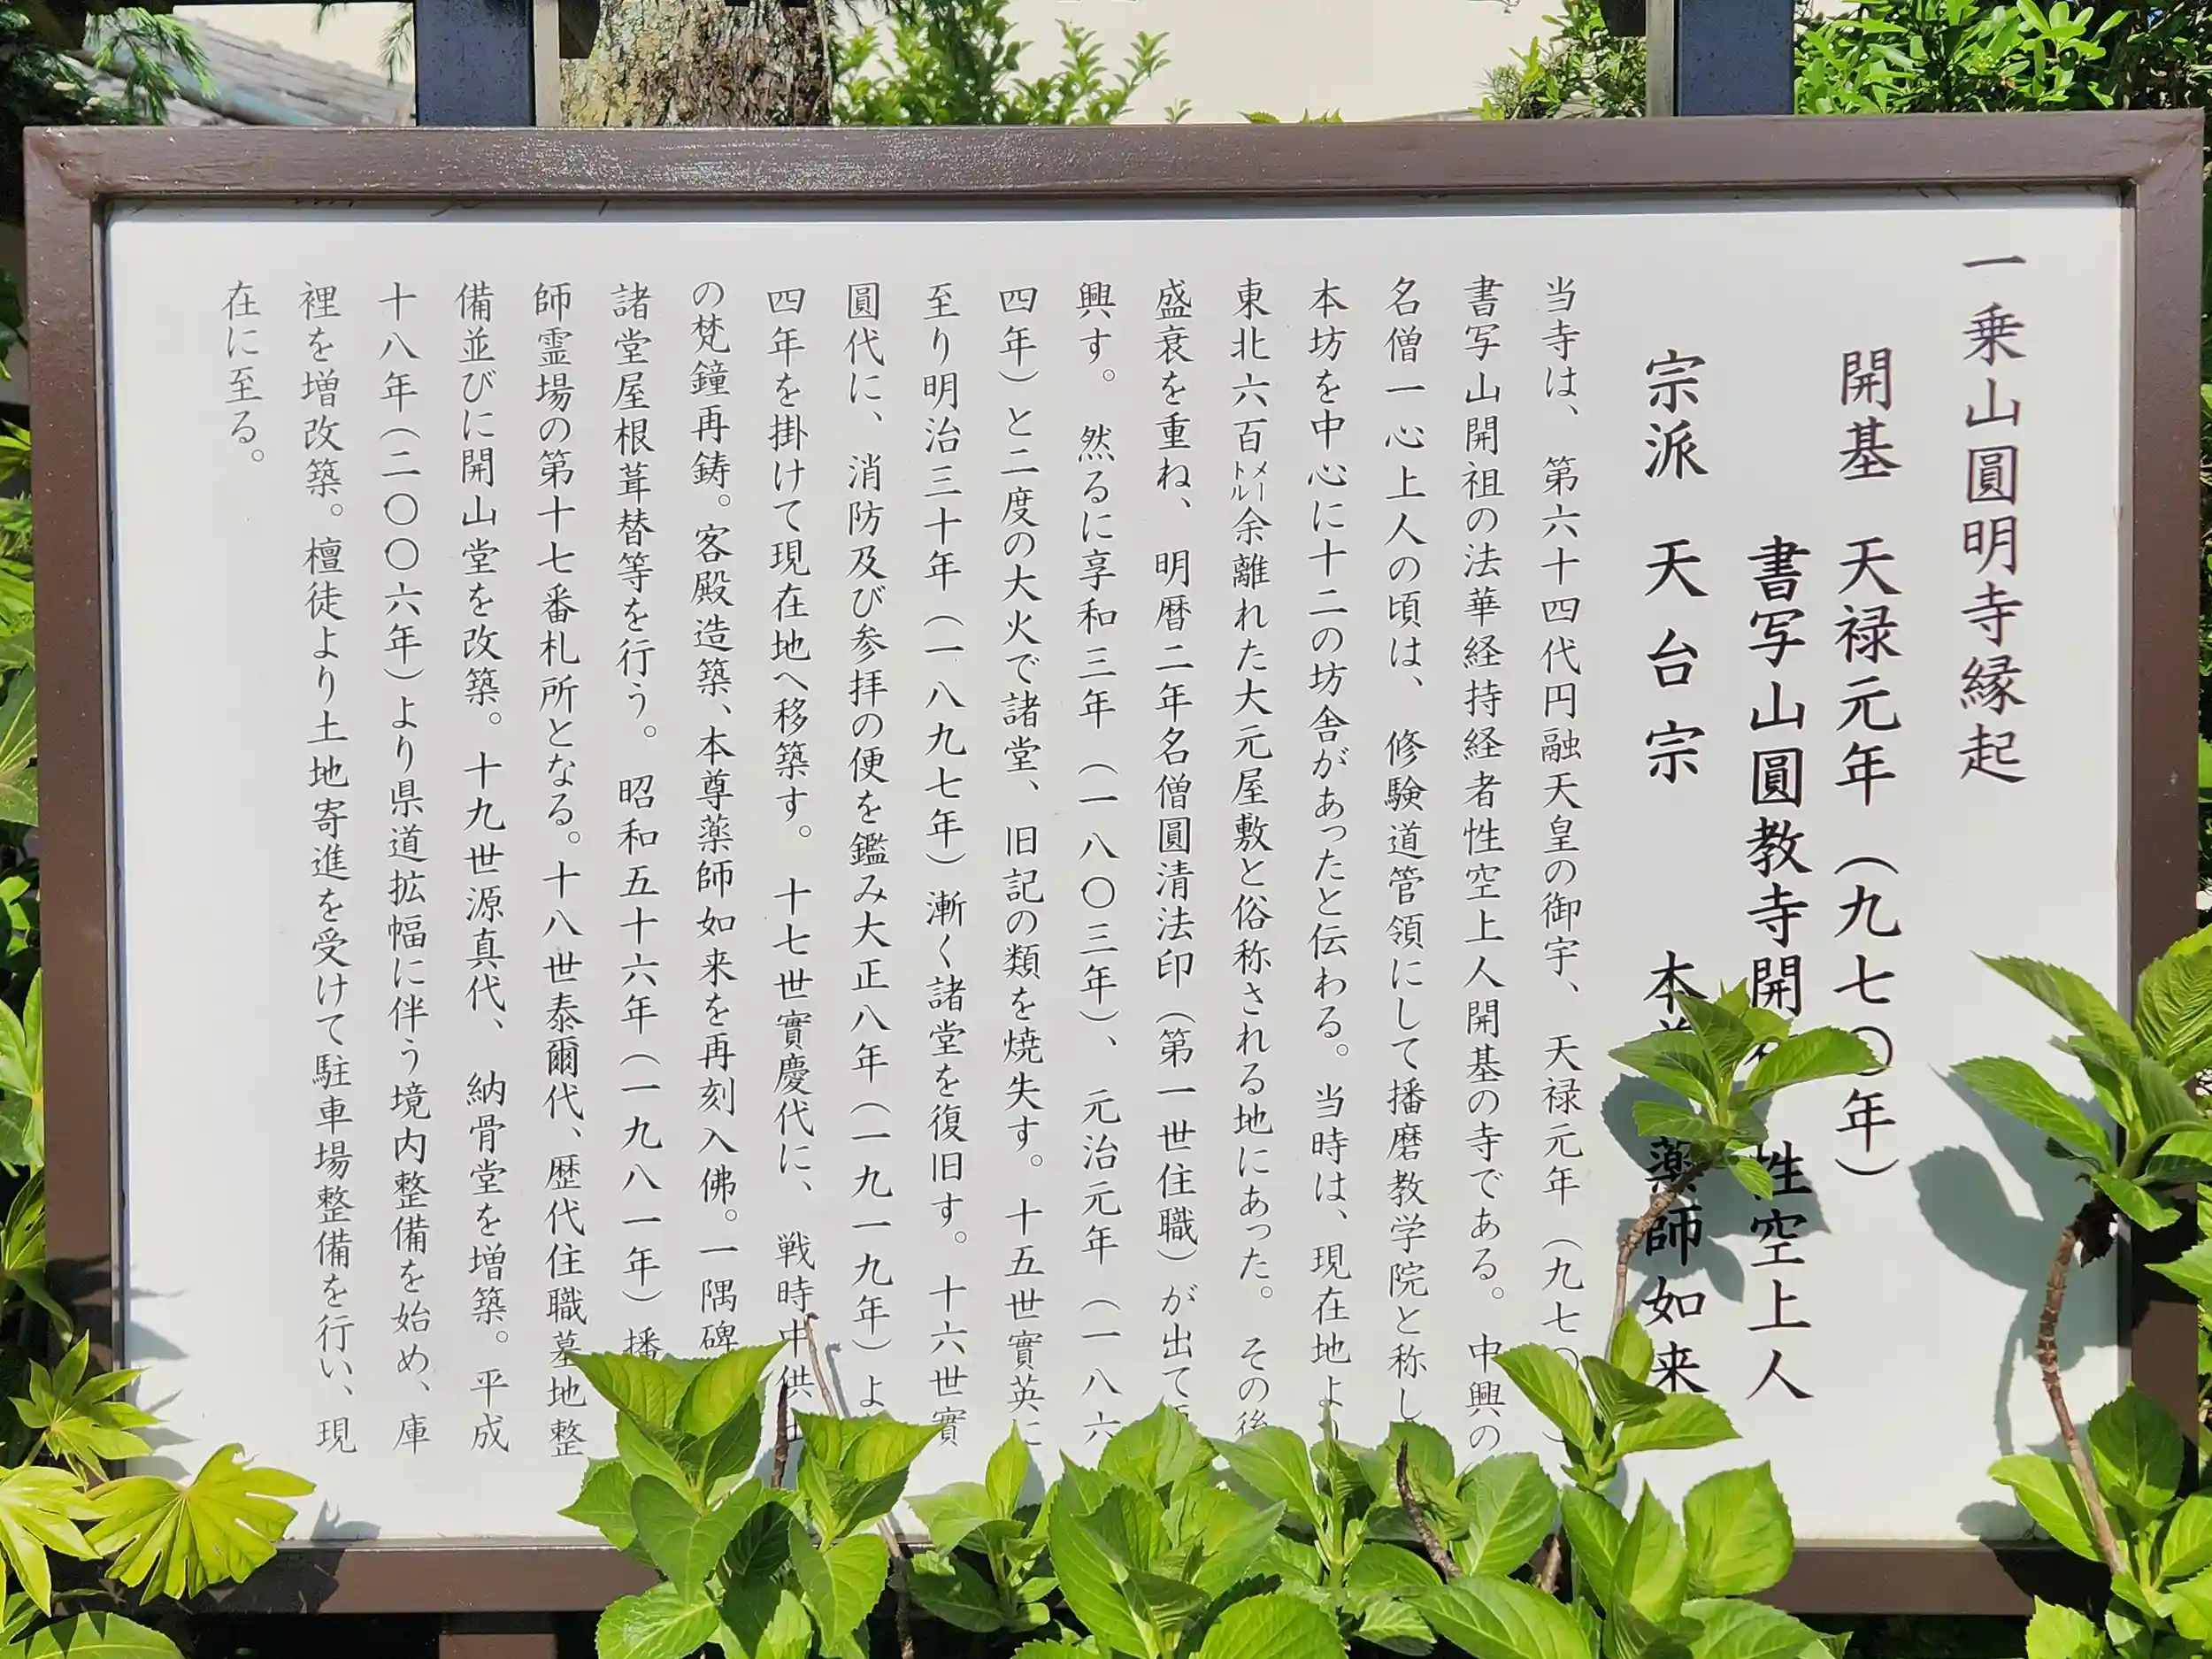 一乗山圓明寺縁起
開基 天禄元年（九七〇年）
書写山圓教寺開 性空上人
宗派 天台宗 本尊 薬師如来
当寺は、第六十四代円融天皇の御宇、天禄元年（九七〇
書写山開祖の法華経持経者性空上人開基の寺である。中興の
名僧一心上人の頃は、修験道管領にして播磨教学院と称し
本坊を中心に十二の坊舎があったと伝わる。当時は、現在地より
東北六百㍍余離れた大元屋敷と俗称される地にあった。その後
盛衰を重ね、明暦二年名僧圓清法印（第一世住職）が出て
興す。然るに享和三年（一八〇三年）、元治元年（一八六
四年）と二度の大火で諸堂、旧記の類を焼失す。十五世實英に
至り明治三十年（一八九七年）漸く諸堂を復旧す。十六世實
圓代に、消防及び参拝の便を鑑み大正八年（一九一九年）よ
四年を掛けて現在地へ移築す。十七世實慶代に、戦時中供
の梵鐘再鋳。客殿造築、本尊薬師如来を再刻入佛。一隅碑
諸堂屋根葺替等を行う。昭和五十六年（一九八一年）播
師霊場の第十七番札所となる。十八世泰爾代、歴代住職墓地整
備並びに開山堂を改築。十九世源真代、納骨堂を増築。平成
十八年（二〇〇六年）より県道拡幅に伴う境内整備を始め、庫
裡を増改築。檀徒より土地寄進を受けて駐車場整備を行い、現
在に至る。